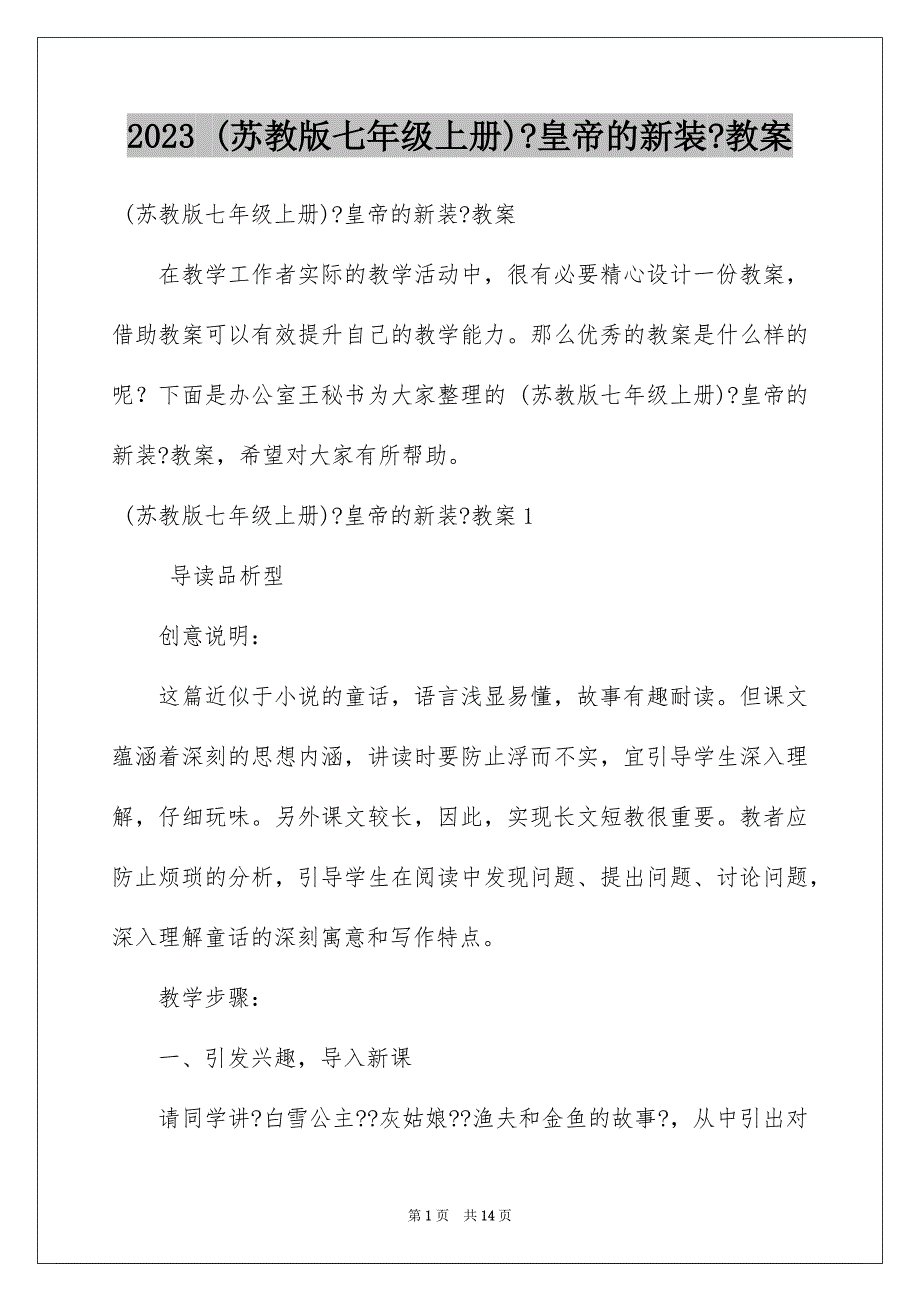 2023 (苏教版七年级上册)?皇帝的新装?教案
(苏教版七年级上册)?皇帝的新装?教案
在教学工作者实际的教学活动中，很有必要精心设计一份教案，
借助教案可以有效提升自己的教学能力。那么优秀的教案是什么样的
呢？下面是办公室王秘书为大家整理的 (苏教版七年级上册)?皇帝的
新装?教案，希望对大家有所帮助。
(苏教版七年级上册)?皇帝的新装?教案 1
导读品析型
创意说明：
这篇近似于小说的童话，语言浅显易懂，故事有趣耐读。但课文
蕴涵着深刻的思想内涵，讲读时要防止浮而不实，宜引导学生深入理
解，仔细玩味。另外课文较长，因此，实现长文短教很重要。教者应
防止烦琐的分析，引导学生在阅读中发现问题、提出问题、讨论问题，
深入理解童话的深刻寓意和写作特点。
教学步骤：
一、引发兴趣，导入新课
请同学讲?白雪公主??灰姑娘??渔夫和金鱼的故事?，从中引出对
第 1 页 共 14 页